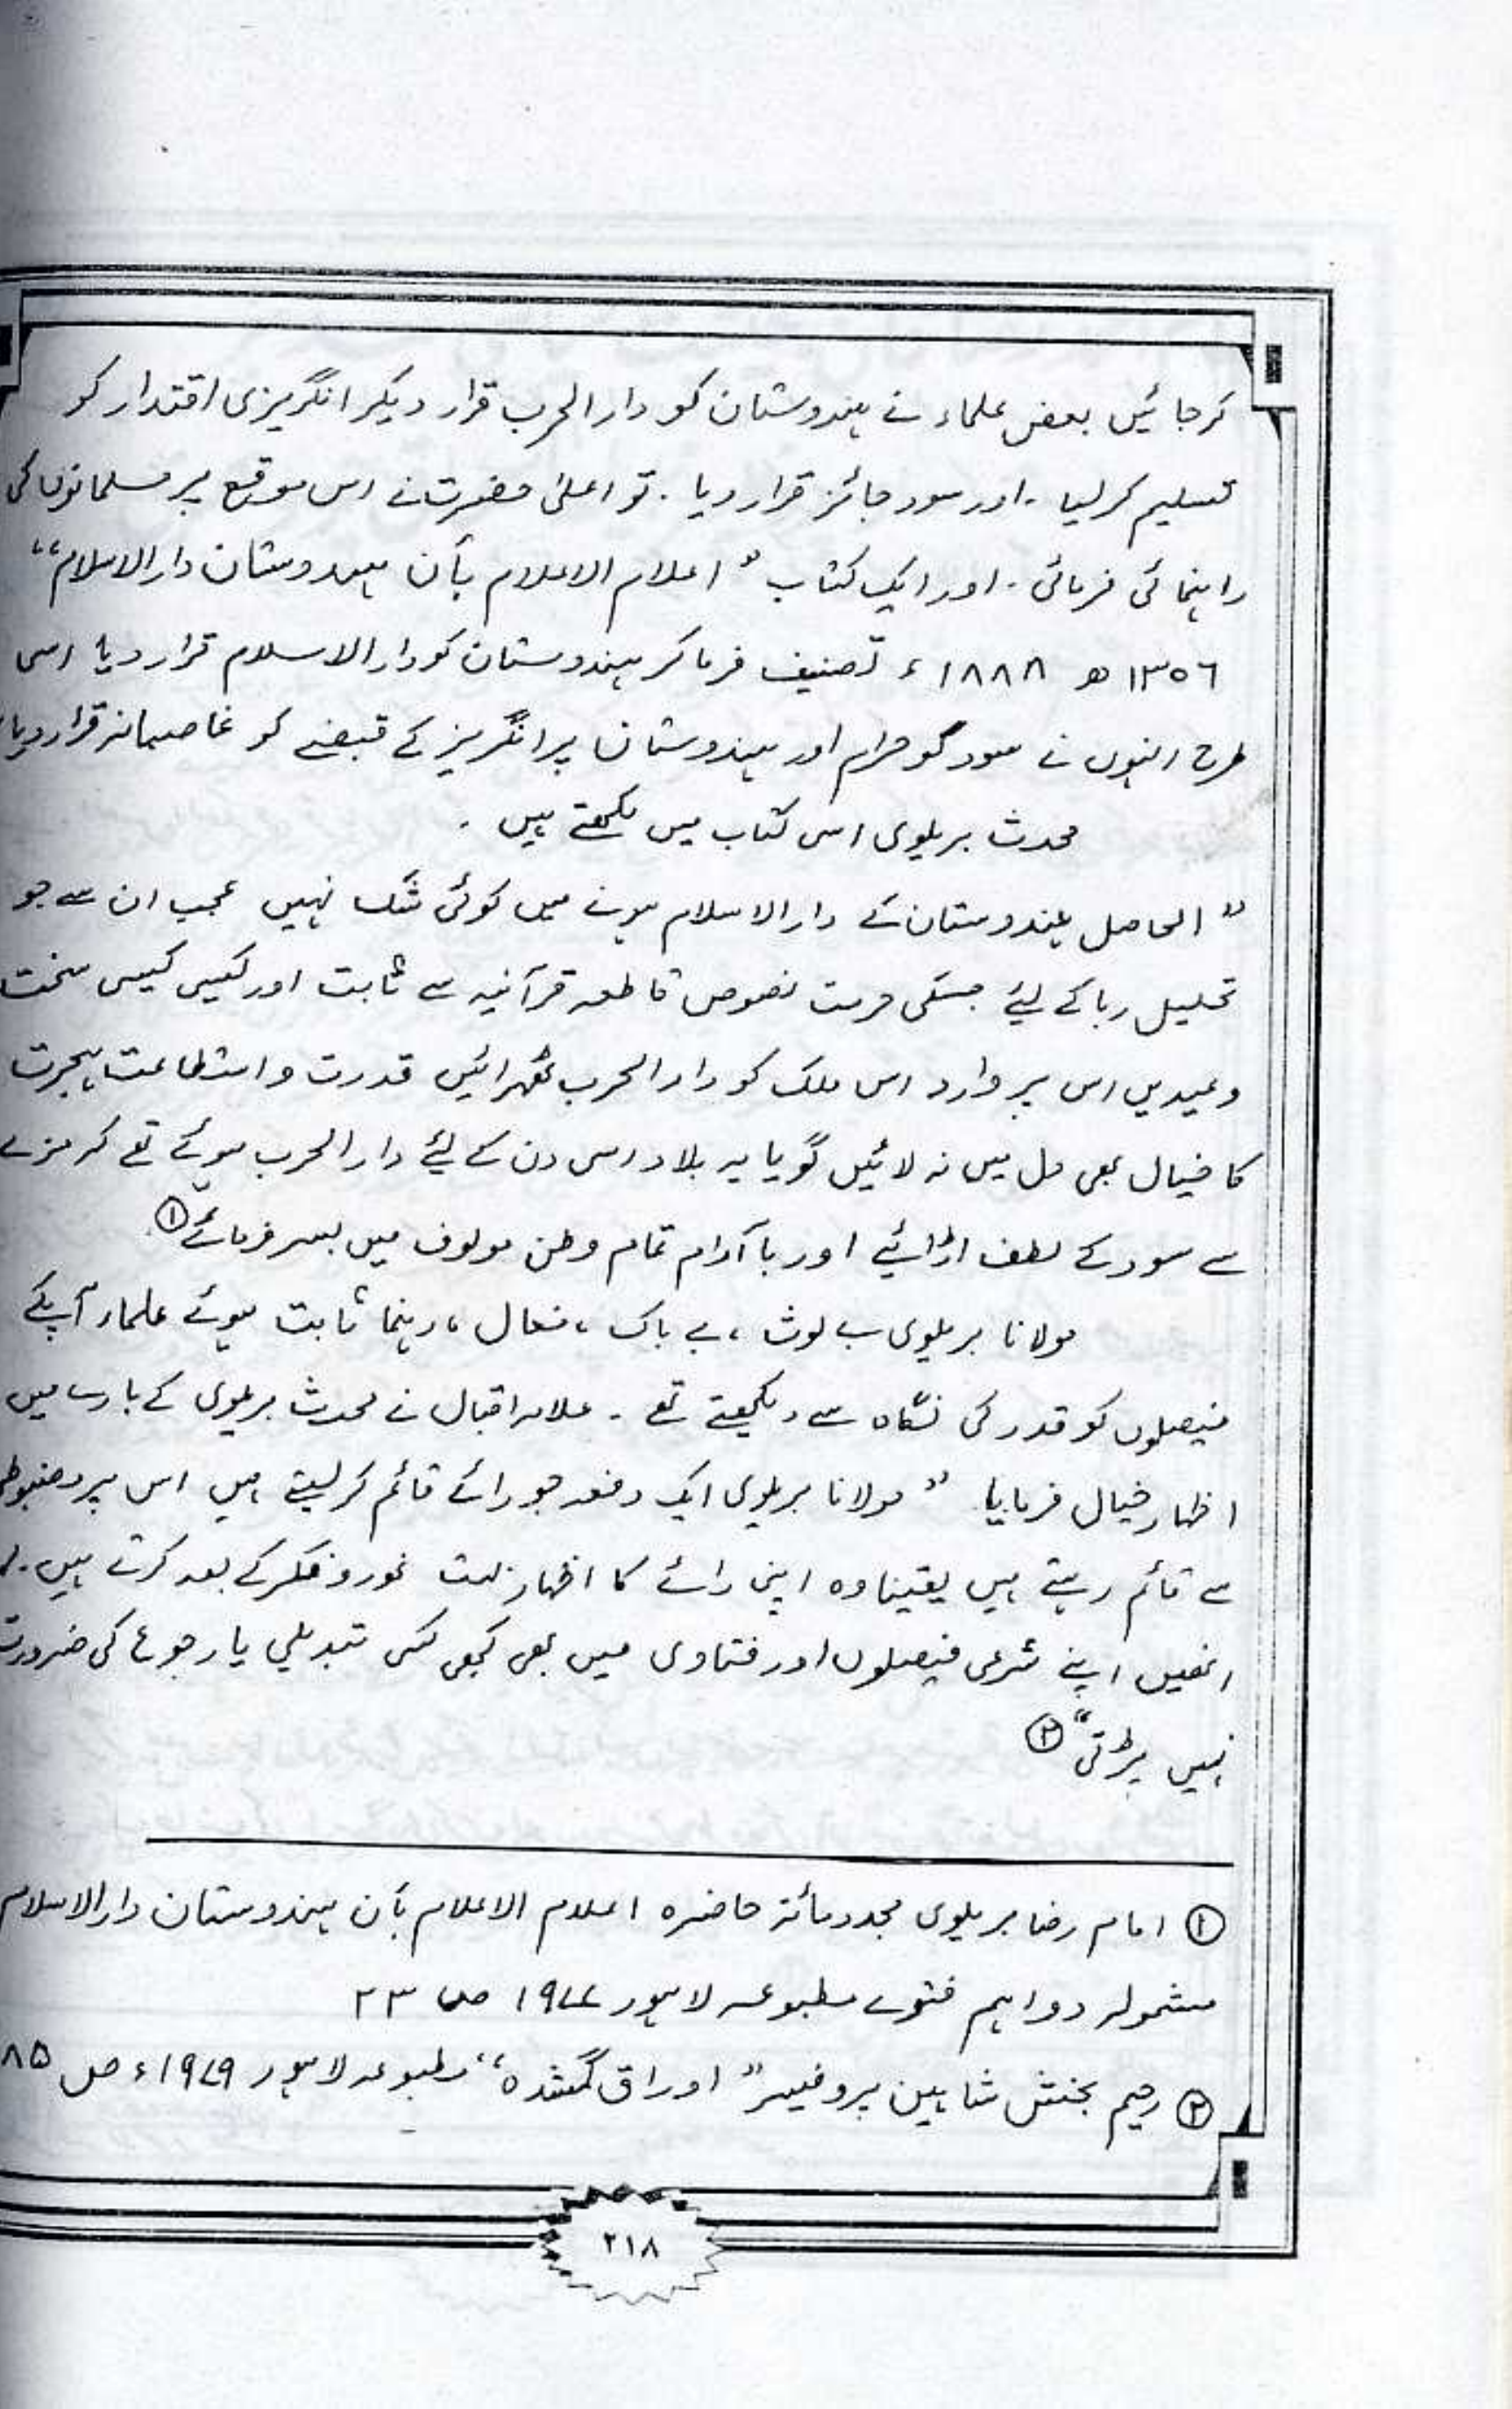 کرجائیں بعض علماء نے ہندوستان کو دارالحرب قرار دیکر انگریزی اقتدار کو
تسلیم کرلیا ۔ اور سود جائز قرار دیا ۔ تو اعلیٰ حضرت نے اس موقع پر مسلمانوں کی
راہنمائی فرمائی ۔ اور ایک کتاب " اعلام الاعلام بأن ہندوستان دارالاسلام "
١٣٥٦ ھ ١٨٨٨ ء تصنیف فرما کر ہندوستان کو دارالاسلام قرار دیا اسی
طرح انہوں نے سود کو حرام اور ہندوستان پر انگریز کے قبضے کو غاصبانہ قرار دیا
محدث بریلوی اسی کتاب میں لکھتے ہیں ۔
" الحاصل ہندوستان کے دارالاسلام ہونے میں کوئی شک نہیں عجب ان سے جو
تحلیل ربا کے لیٔے جسکی حرمت نصوص قاطعہ قرآنیہ سے ثابت اور کیسی کیسی سخت
وعیدیں اس پر وارد اس ملک کو دارالحرب ٹھرائیں قدرت و استطاعت ہجرت
کا خیال بھی دل میں نہ لائیں گویا یہ بلاد اسی دن کے لیٔے دارالحرب ہوئے تھے کہ مزے
سے سود کے لطف اڑائیے اور باآرام تمام وطن مولوف میں بسر فرمائے ①
مولانا بریلوی بے لوث ، بے باک ، فعال ، رہنما ثابت ہوئے علماء آپکے
فیصلوں کو قدر کی نگاہ سے دیکھتے تھے ۔ علامہ اقبال نے محدث بریلوی کے بارے میں
اظہار خیال فرمایا " مولانا بریلوی ایک دفعہ جو رائے قائم کرلیتے ہیں اس پر مضبوطی
سے قائم رہتے ہیں یقینا وہ اپنی رائے کا اظہار بہت غور و فکر کے بعد کرتے ہیں ۔
انھیں اپنے شرعی فیصلوں اور فتاوی میں بھی کبھی کسی تبدیلی یا رجوع کی ضرورت
نہیں پڑتی " ②
① امام رضا بریلوی مجدد مأتہ حاضرہ اعلام الاعلام بأن ہندوستان دارالاسلام
مشمولہ دو اہم فتوے مطبوعہ لاہور ١٩٧٧ ص ٢٣
② رحیم بخش شاہین پروفیسر " اوراق گمشدہ " مطبوعہ لاہور ١٩٧٩ء ص ٨٥
٢١٨